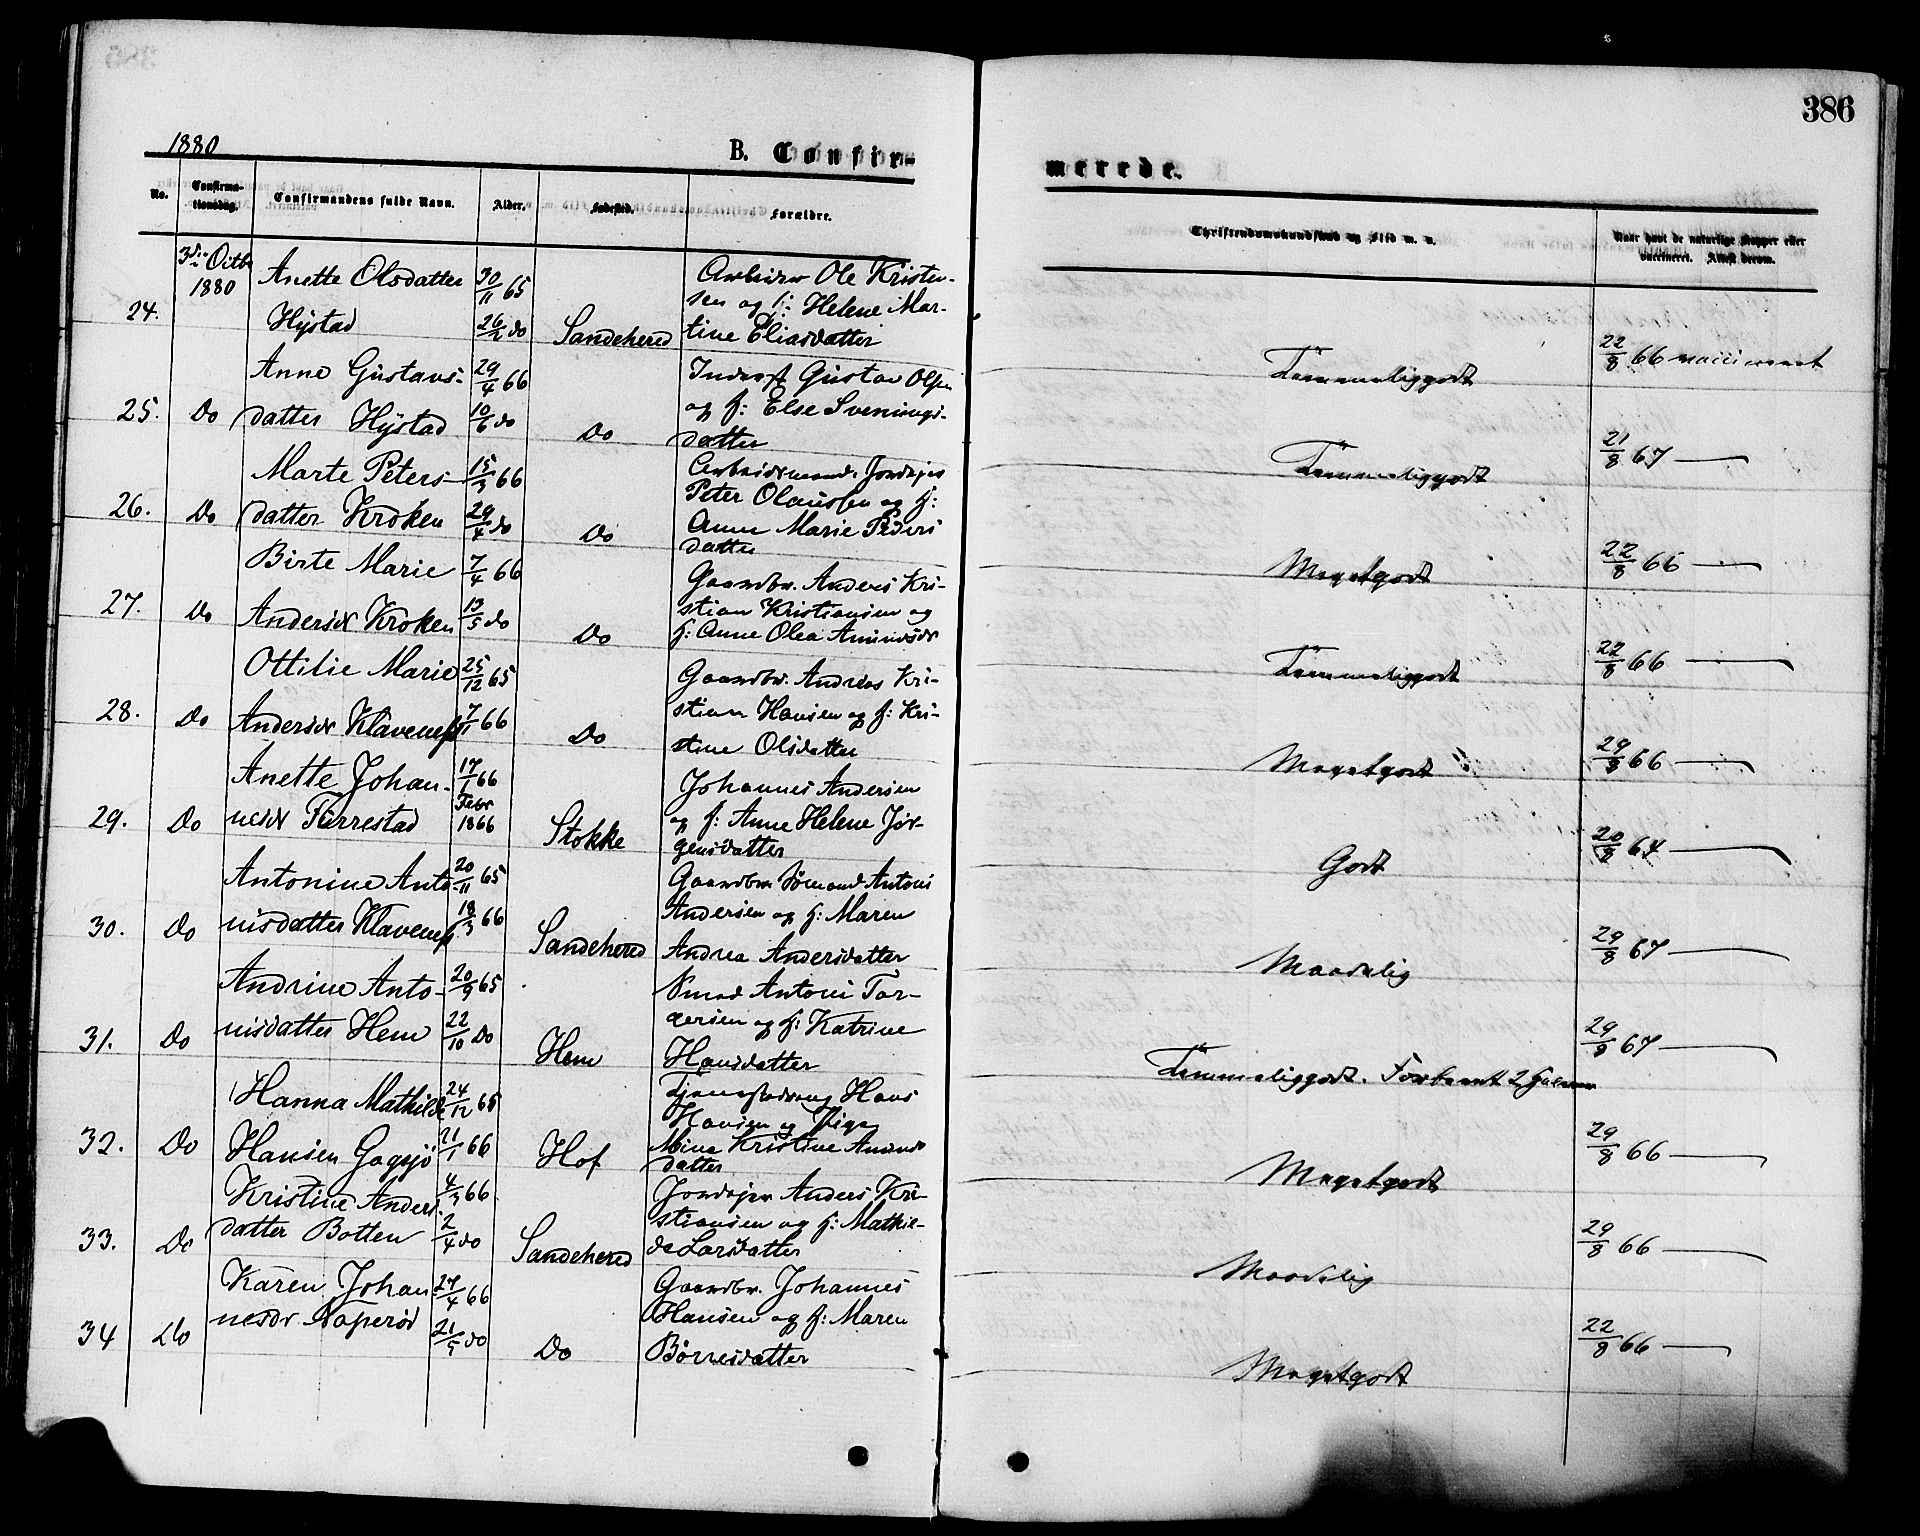 386
1880
B. Confir-
merede.
No.
Confirma-
tionsdag.
Confirmandens fulde Navn.
Alder.
Fødested.
Forældre.
Christendomskundskab og Flid m. v.
Naar havt de naturlige Kopper eller
vaccineret. Attest derom.
24.
3die Octbr
1880
Anette Olsdatter
Hystad
30/11 65
26/12 do
Sandehered
Arbeider Ole Kristen-
sen og h: Helene Mar-
tine Eliasdatter
Temmeliggodt
22/8 66 vaccineret
25.
Do
Anne Gustavs-
datter Hystad
29/4 66
10/6 do
Do
Inderst Gustav Olsen
og h: Else Svenings-
datter
Temmeliggodt
21/8 67 —
26.
Do
Marte Peters-
datter Kroken
15/3 66
29/4 do
Do
Arbeidsmand. Jordejer
Peter Olaussen og h:
Anne Marie Peders
datter
Megetgodt
22/8 66 —
27.
Do
Birte Marie
Andersdr Kroken
7/4 66
13/5 do
Do
Gaardbr. Anders Kri-
stian Kristiansen og
h: Anne Olea Amundsdr
Temmeliggodt
22/8 66 —
28.
Do
Ottilie Marie
Andersdr Klaveness
25/12 65
7/1 66
Do
Gaardbr. Andreas Kri-
stian Hansen og h: Kri-
stine Olsdatter
Megetgodt
29/8 66 —
29.
Do
Anette Johan-
nesdr Furrestad
17/1 66
Febr
1866
Stokke
Johannes Andersen
og h: Anne Helene Jør-
gensdatter
Godt
20/8 64 —
30.
Do
Antonine Anto-
nisdatter Klaveness
20/11 65
18/3 66
Sandehered
Gaardbr. Sømand Antoni
Andersen og h: Maren
Andrea Andersdatter
Maadelig
29/8 67 —
31.
Do
Andrine Anto-
nisdatter Hem
20/9 65
22/10 Do
Hem
Smed Antoni Tor-
gersen og h: Katrine
Hansdatter
Temmeliggodt.
29/8 67 —
32.
Do
Hanna Mathilde
Hansen Gogsjø
24/12 65
21/1 66
Hof
Hans
Hansen og Pige
Mina Kristine Amunds
datter
Megetgodt
29/8 66 —
33.
Do
Kristine Anders-
datter Botten
4/3 66
2/4 do
Sandehered
Jordejer Anders Kri-
stiansen og h: Mathil-
de Larsdatter
Maadelig
29/8 66 —
34
Do
Karen Johan
nesdr Naperød
27/4 66
21/5 do
Do
Gaardbr. Johannes
Hansen og h: Maren
Børresdatter
Megetgodt
22/8 66 —